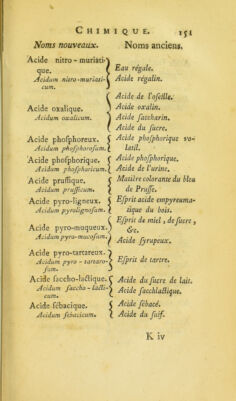 CHIMIQUE. 151
Noms nouveaux. Noms anciens.
Acide nitro-muriati-
que.
Acidum nitro-muriati-
cum.
Eau régale.
Acide régalin.
Acide oxalique.
Acidum oxalicum.
Acide de l'oſeille.
Acide oxalin.
Acide ſaccharin.
Acide du ſucre.
Acide phoſphoreux.
Acidum phoſphoroſum.
Acide phoſphorique vo-
latil.
Acide phoſphorique.
Acidum phoſphoricum.
Acide phoſphorique.
Acide de l'urine.
Acide pruſſique.
Acidum pruſſicum.
Matière colorante du bleu
de Pruſſe.
Acide pyro-ligneux.
Acidum pyrolignoſum.
Eſprit acide empyreuma-
tique du bois.
Acide pyro-muqueux.
Acidum pyro-mucoſum.
Eſprit de miel, de ſucre,
&c.
Acide ſyrupeux.
Acide pyro-tartareux.
Acidum pyro-tartaro-
ſum.
Eſprit de tartre.
Acide ſaccho-lactique.
Acidum ſaccho-lacti-
cum.
Acide du ſucre de lait.
Acide ſacchlactique.
Acide ſébacique.
Acidum ſebacicum.
Acide ſébacé.
Acide du ſuif.
K iv